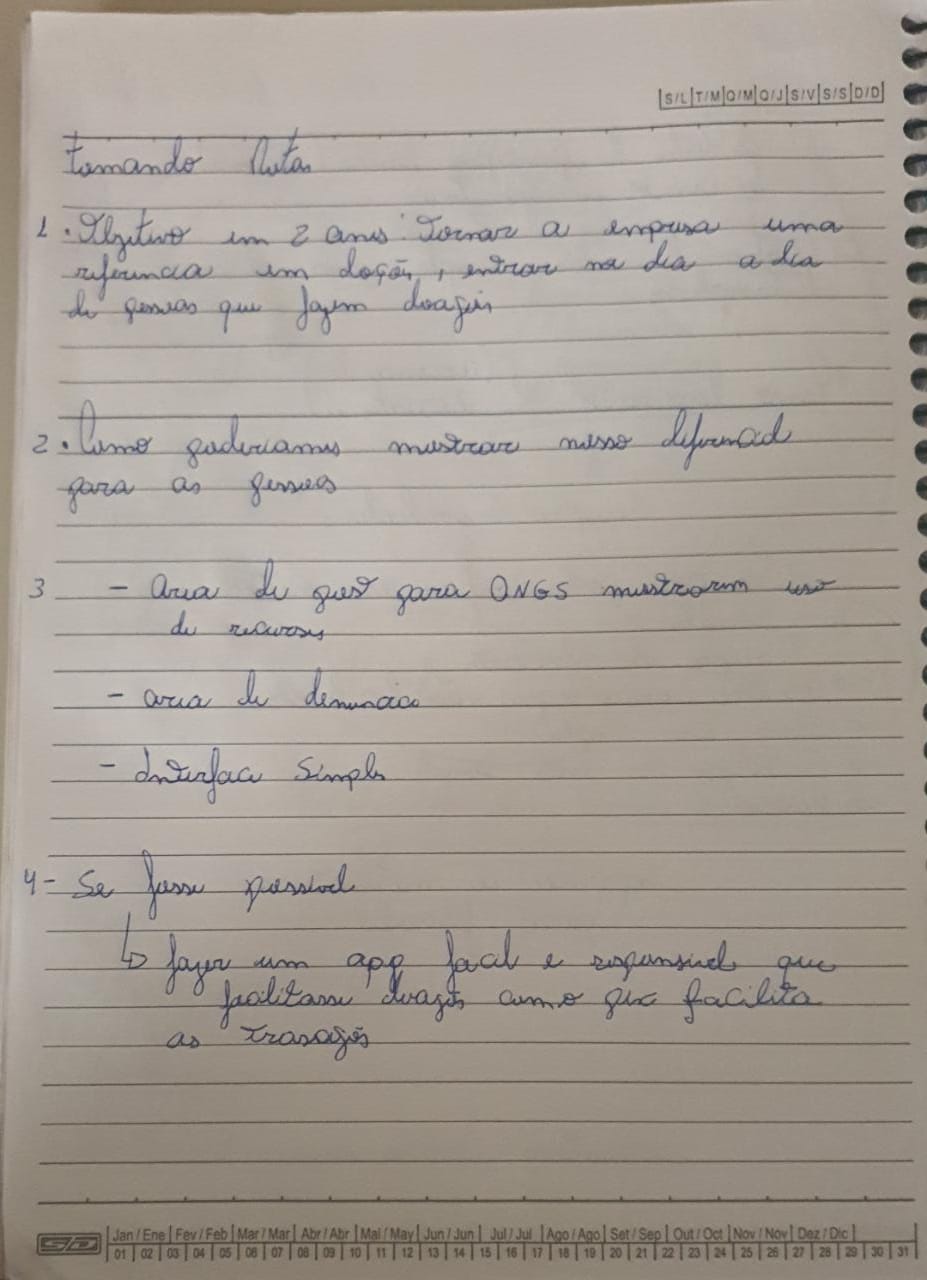 S/L T/M Q/M Q/J S/V S/S D/D
Tomando Notas
1. Objetivo em 2 anos: Tornar a empresa uma
referencia em doção, entrar no dia a dia
de pessoas que fazem doações
2. Como poderiamos mostrar nosso diferencial
para as pessoas
3 - Area de post para ONGS mostrarem uso
de recursos
- area de denuncia
- Interface simples
4- Se fosse possivel
↳ fazer um app facil e responsivel que
facilitasse doações como pix facilita
as trasações
SD Jan/Ene Fev/Feb Mar/Mar Abr/Abr Mai/May Jun/Jun Jul/Jul Ago/Ago Set/Sep Out/Oct Nov/Nov Dez/Dic
01 02 03 04 05 06 07 08 09 10 11 12 13 14 15 16 17 18 19 20 21 22 23 24 25 26 27 28 29 30 31